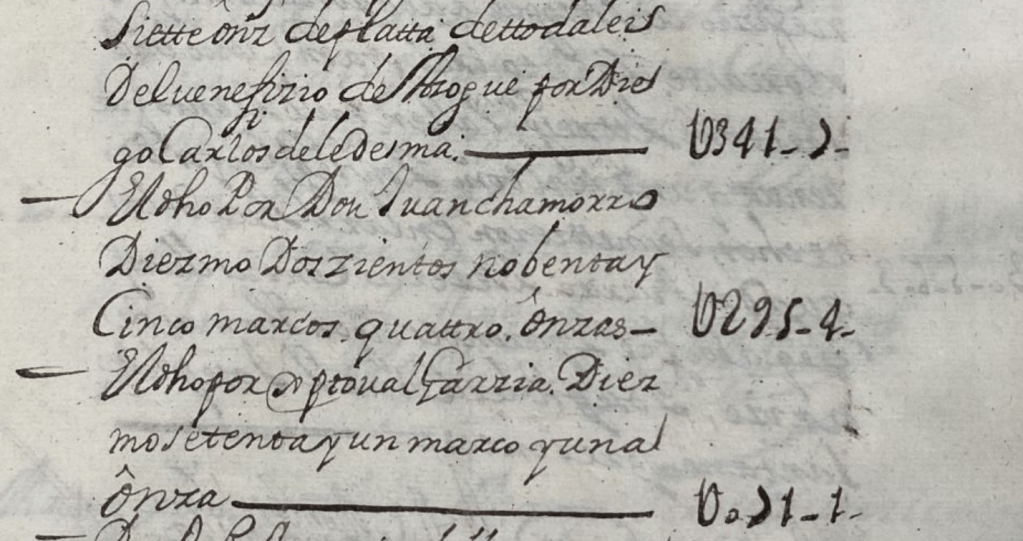 siette ônz de platta de ttoda leis
Del venefizio de Azogue por Die
go Carlos de leDesma. U341-7-
El dho Por Don Juan chamorro
Diezmo Dozzientos nobenta y
Cinco marcos quattro ônzas- U295-4-
El dho por xptoual Garzia. Diez
mo setenta y un marco y una
ônza U071-1-